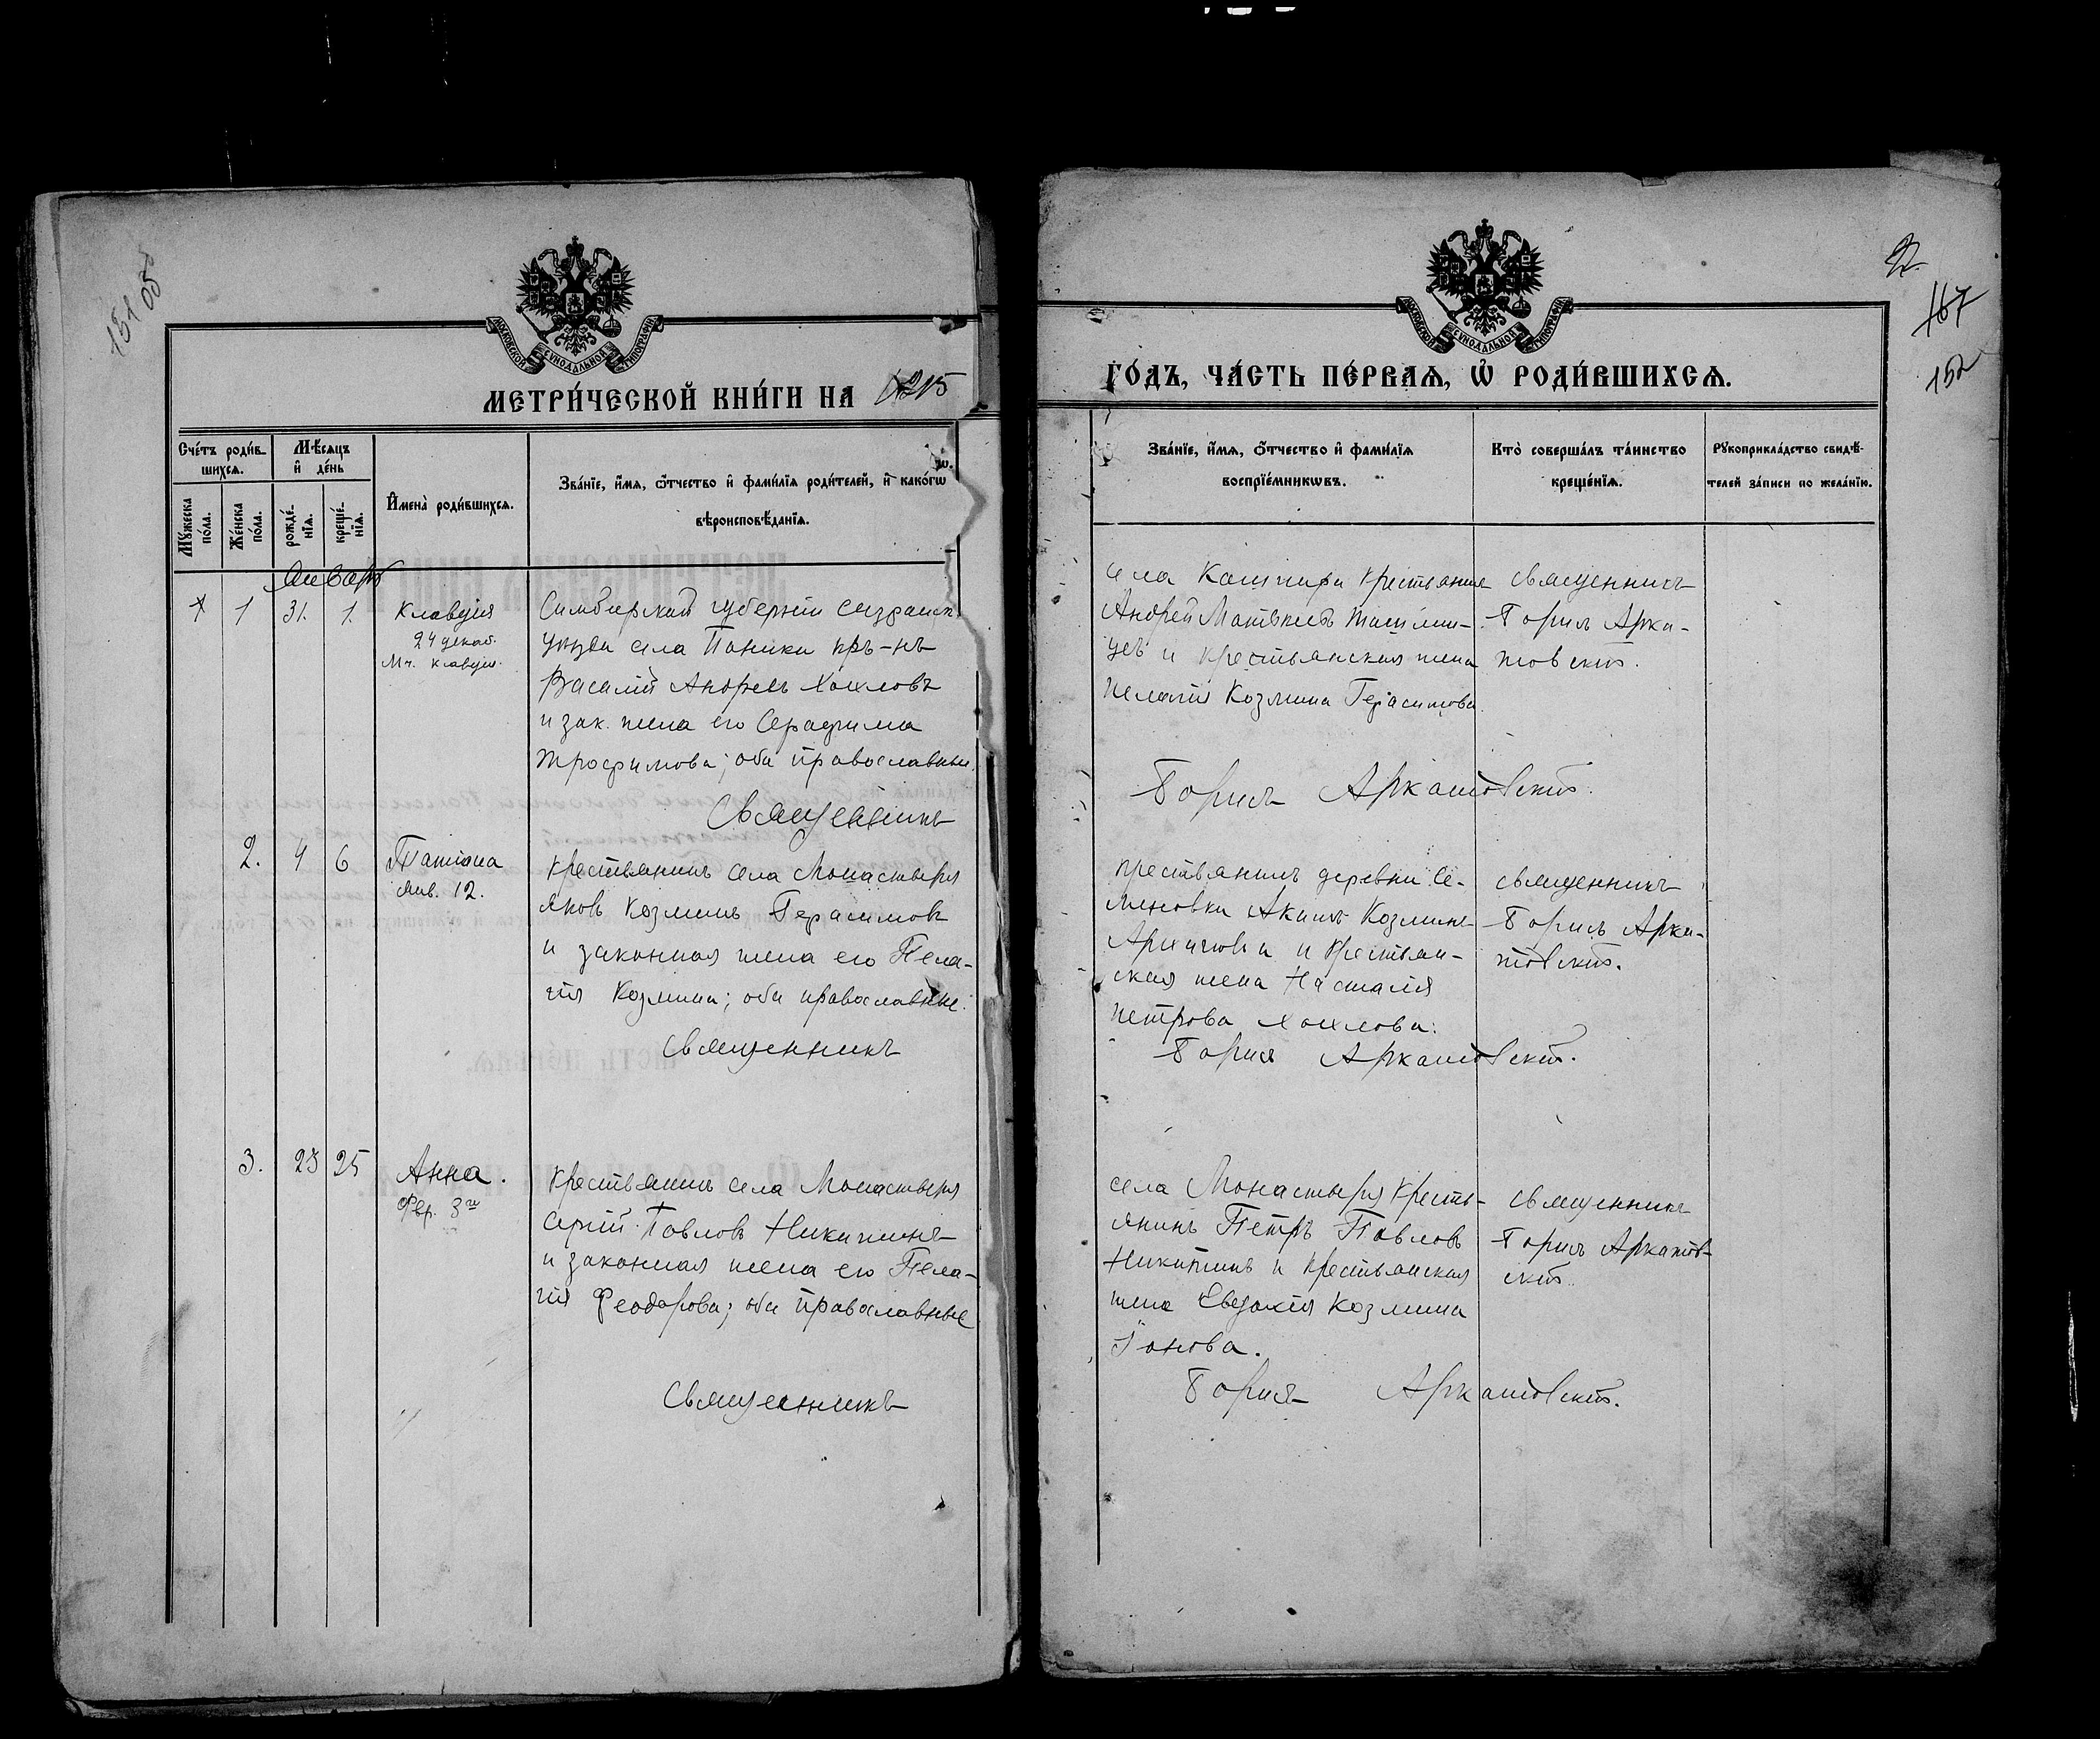 151 об
МОСКОВСКОЙ СѴНОДАЛЬНОЙ ТИПОГРАФІИ
МЕТРИ́ЧЕСКОЙ КНИ́ГИ НА 1915
Сче́тъ роди́в-
шихсѧ.
Мѣ́сѧцъ
и҆ де́нь
Мꙋ́жеска
по́ла.
Же́нска
по́ла.
рожде́-
нїѧ.
креще́-
нїѧ.
И҆мена̀ роди́вшихсѧ.
Зва́нїе, и҆́мѧ, ѻ҆́тчество и҆ фами́лїѧ роди́телей, и҆ како́гѡ
вѣроисповѣ́данїѧ.
Январь
1 31. 1.
Клавдія
24 декаб.
Мч. Клавдіи.
Симбирской губерніи Сызранск.
уѣзда села Паники кр-нъ
Василій Андреевъ Хохловъ
и зак. жена его Серафима
Трофимова; оба православные.
Священникъ
2. 4 6
Татіана
Янв. 12.
Крестьянинъ села Монастыря
Яковъ Козминъ Герасимовъ
и законная жена его Пела-
гія Козмина; оба православные.
Священникъ
3. 23 25
Анна.
Фвр. 3го
Крестьянинъ села Монастыря
Сергій Павловъ Никитинъ
и законная жена его Пела-
гія Феодорова; оба православные
Священникъ
2
167
152
МОСКОВСКОЙ СѴНОДАЛЬНОЙ ТИПОГРАФІИ
ГО́ДЪ, ЧА́СТЬ ПЕ́РВАѦ, Ѽ РОДИ́ВШИХСѦ.
Зва́нїе, и҆́мѧ, ѻ҆́тчество и҆ фами́лїѧ
воспрїе́мникѡвъ.
Кто̀ соверша́лъ та́инство
креще́нїѧ.
Рꙋкоприкла́дство свидѣ́-
телей за́писи по жела́нїю.
села Кашпира крестьянинъ
Андрей Матвѣевъ
и крестьянская жена
Пелагія Козмина Герасимова.
священникъ
Борисъ Арка-
товскій.
Борисъ Аркатовскій.
крестьянинъ деревни Се-
меновки Акимъ Козминъ
и крестьян-
ская жена Наталія
Петрова Хохлова.
священникъ
Борисъ Арка-
товскій.
Борисъ Аркатовскій.
села Монастыря кресть-
янинъ Петръ Павловъ
Никитинъ и крестьянская
жена Евдокія Козмина
Іонова.
священникъ
Борисъ Аркатов-
скій.
Борисъ Аркатовскій.